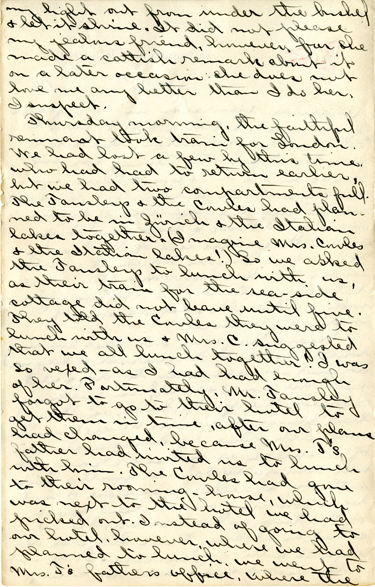 my light out from under the bushel
& let it shine. It did not please
my jealous friend, however, for she
made a cattish remark about it
on a later occasion: she does not
love me any better than I do her,
I suspect.
Thursday morning, the faithful
remnant took train for London.
We had lost a few by this time,
who had had to return earlier,
but we had two compartments full.
The Tansleys & the Cowles had plan-
ned to be in Zürich & the Italian
lakes together. (Imagine Mrs. Cowles
& the Italian lakes!) So we asked
the Tansleys to lunch with us,
as their train for the sea-side
cottage did not leave until five.
They told the Cowles they were to
lunch with us & Mrs. C. suggested
that we all lunch together! I was
so vexed – as I had had enough
of her. Fortunately, Mr. Tansley
forgot to go to their hotel to
get them in time, after our plans
had changed, because Mrs. T's
father had invited us to lunch
with him. The Cowles had gone
to their rooming-house, which
was next to the hotel we had
picked out. Instead of going to
our hotel, however, where we had
planned to lunch, we went to
Mrs. T's father's office, where the